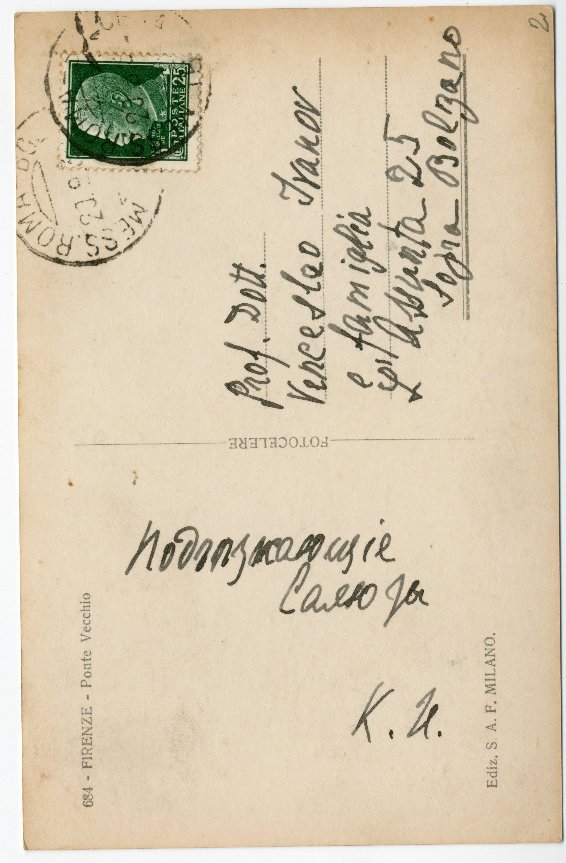 2
POSTE
ITALIANE 25
MESS. ROMA
Prof. Dott.
Venceslao Ivanov
e famiglia
L'Assunta 25
Sopra Bolzano
FOTOCELERE
Салюзы
К. И.
684 - FIRENZE - Ponte Vecchio
Ediz. S. A. F. MILANO.